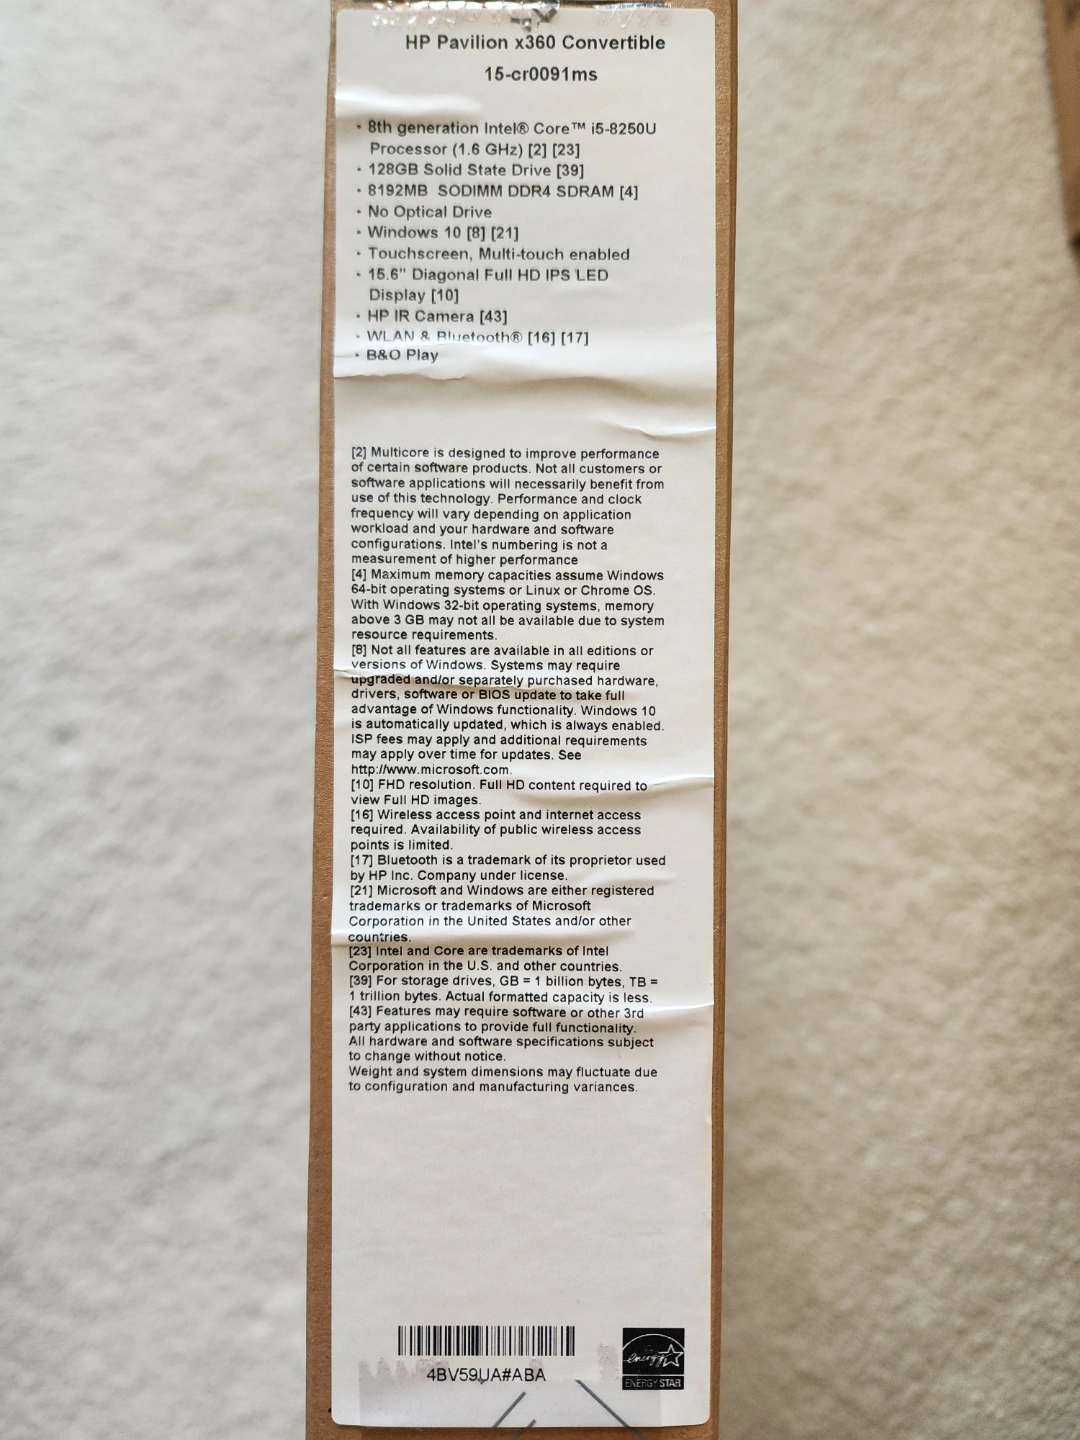 HP Pavilion x360 Convertible
15-cr0091ms
• 8th generation Intel® Core™ i5-8250U
Processor (1.6 GHz) [2] [23]
• 128GB Solid State Drive [39]
• 8192MB SODIMM DDR4 SDRAM [4]
• No Optical Drive
• Windows 10 [8] [21]
• Touchscreen, Multi-touch enabled
• 15.6" Diagonal Full HD IPS LED
Display [10]
• HP IR Camera [43]
• WLAN & Bluetooth® [16] [17]
• B&O Play
[2] Multicore is designed to improve performance
of certain software products. Not all customers or
software applications will necessarily benefit from
use of this technology. Performance and clock
frequency will vary depending on application
workload and your hardware and software
configurations. Intel's numbering is not a
measurement of higher performance
[4] Maximum memory capacities assume Windows
64-bit operating systems or Linux or Chrome OS.
With Windows 32-bit operating systems, memory
above 3 GB may not all be available due to system
resource requirements.
[8] Not all features are available in all editions or
versions of Windows. Systems may require
upgraded and/or separately purchased hardware,
drivers, software or BIOS update to take full
advantage of Windows functionality. Windows 10
is automatically updated, which is always enabled.
ISP fees may apply and additional requirements
may apply over time for updates. See
http://www.microsoft.com.
[10] FHD resolution. Full HD content required to
view Full HD images.
[16] Wireless access point and internet access
required. Availability of public wireless access
points is limited.
[17] Bluetooth is a trademark of its proprietor used
by HP Inc. Company under license.
[21] Microsoft and Windows are either registered
trademarks or trademarks of Microsoft
Corporation in the United States and/or other
countries.
[23] Intel and Core are trademarks of Intel
Corporation in the U.S. and other countries.
[39] For storage drives, GB = 1 billion bytes, TB =
1 trillion bytes. Actual formatted capacity is less.
[43] Features may require software or other 3rd
party applications to provide full functionality.
All hardware and software specifications subject
to change without notice.
Weight and system dimensions may fluctuate due
to configuration and manufacturing variances.
4BV59UA#ABA
energy
ENERGY STAR